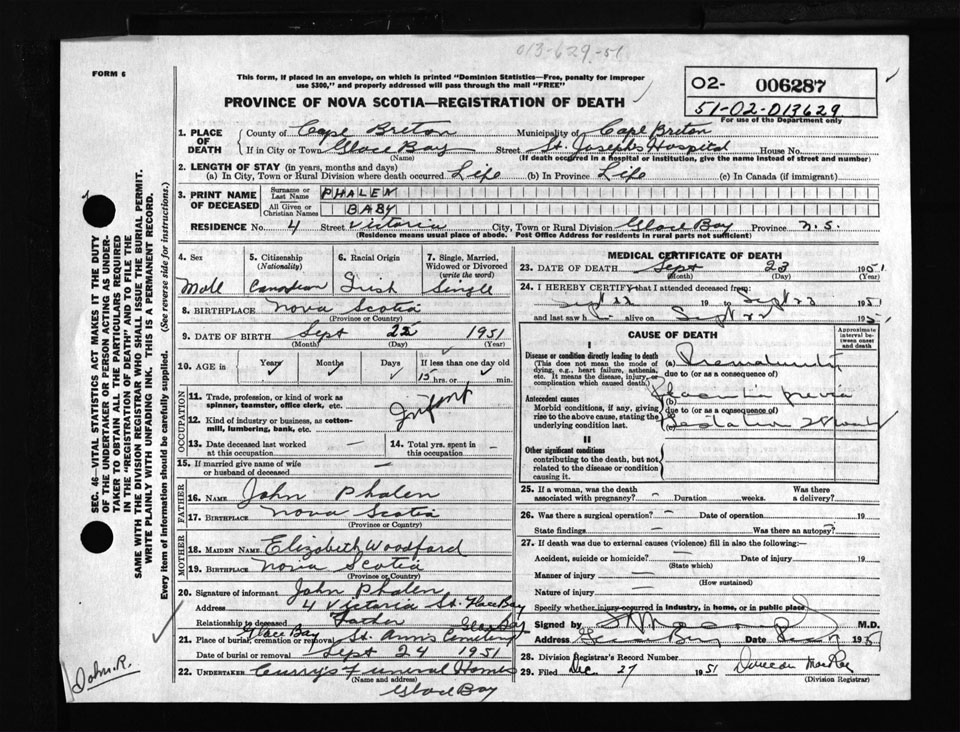 013-629-51
FORM 6
This form, if placed in an envelope, on which is printed "Dominion Statistics—Free, penalty for improper
use $300," and properly addressed will pass through the mail "FREE"
PROVINCE OF NOVA SCOTIA—REGISTRATION OF DEATH
02- 006287
51-02-013629
For use of the Department only
SEC. 46—VITAL STATISTICS ACT MAKES IT THE DUTY
OF THE UNDERTAKER OR PERSON ACTING AS UNDER-
TAKER TO OBTAIN ALL THE PARTICULARS REQUIRED
IN THE "REGISTRATION OF DEATH" AND TO FILE THE
SAME WITH THE DIVISION REGISTRAR WHO SHALL ISSUE THE BURIAL PERMIT.
WRITE PLAINLY WITH UNFADING INK. THIS IS A PERMANENT RECORD.
Every item of information should be carefully supplied. (See reverse side for instructions).
1. PLACE OF DEATH County of Cape Breton Municipality of Cape Breton
If in City or Town Glace Bay Street St. Josephs Hospital House No.
(Name) (If death occurred in a hospital or institution, give the name instead of street and number)
2. LENGTH OF STAY (in years, months and days)
(a) In City, Town or Rural Division where death occurred. Life (b) In Province Life (c) In Canada (if immigrant)
3. PRINT NAME OF DECEASED Surname or Last Name PHALEN
All Given or Christian Names BABY
RESIDENCE No. 4 Street Victoria City, Town or Rural Division Glace Bay Province N.S.
(Residence means usual place of abode. Post Office Address for residents in rural parts not sufficient)
4. Sex 5. Citizenship (Nationality) 6. Racial Origin 7. Single, Married, Widowed or Divorced (write the word)
Male Canadian Irish Single
8. BIRTHPLACE Nova Scotia
(Province or Country)
9. DATE OF BIRTH Sept 22 1951
(Month) (Day) (Year)
10. AGE in Years Months Days If less than one day old
15 hrs. or min.
OCCUPATION
11. Trade, profession, or kind of work as
spinner, teamster, office clerk, etc.
Infant
12. Kind of industry or business, as cotton-
mill, lumbering, bank, etc.
13. Date deceased last worked at this occupation — 14. Total yrs. spent in this occupation —
15. If married give name of wife
or husband of deceased —
FATHER
16. NAME John Phalen
17. BIRTHPLACE Nova Scotia
(Province or Country)
MOTHER
18. MAIDEN NAME Elizabeth Woodford
19. BIRTHPLACE Nova Scotia
(Province or Country)
20. Signature of informant John Phalen
Address 4 Victoria St. Glace Bay
Relationship to deceased Father
Glace Bay
21. Place of burial, cremation or removal St. Ann's Cemetery
Date of burial or removal Sept 24 1951
22. UNDERTAKER Curry's Funeral Homes
(Name and address)
Glace Bay
John R.
MEDICAL CERTIFICATE OF DEATH
23. DATE OF DEATH Sept 23 1951
(Month) (Day)
24. I HEREBY CERTIFY that I attended deceased from:
Sept 22 19 to Sept 23 1951
and last saw h alive on Sept 22 195
CAUSE OF DEATH
Approximate interval between onset and death
I
Disease or condition directly leading to death (a) Prematurity
(This does not mean the mode of
dying, e.g., heart failure, asthenia,
etc. It means the disease, injury, or
complication which caused death.)
due to (or as a consequence of)
Antecedent causes (b) Placenta previa
Morbid conditions, if any, giving
rise to the above cause, stating the
underlying condition last.
due to (or as a consequence of)
Gestation
II
Other significant conditions
contributing to the death, but not
related to the disease or condition
causing it.
25. If a woman, was the death
associated with pregnancy? — Duration weeks. Was there
a delivery?
26. Was there a surgical operation? — Date of operation 19
State findings — Was there an autopsy?
27. If death was due to external causes (violence) fill in also the following:—
Accident, suicide or homicide? — Date of injury 19
(State which)
Manner of injury —
(How sustained)
Nature of injury —
Specify whether injury occurred in Industry, in home, or in public place
Signed by M.D.
Address Glace Bay Date 195
28. Division Registrar's Record Number
29. Filed Dec. 27 1951 Duncan MacRae
(Division Registrar)